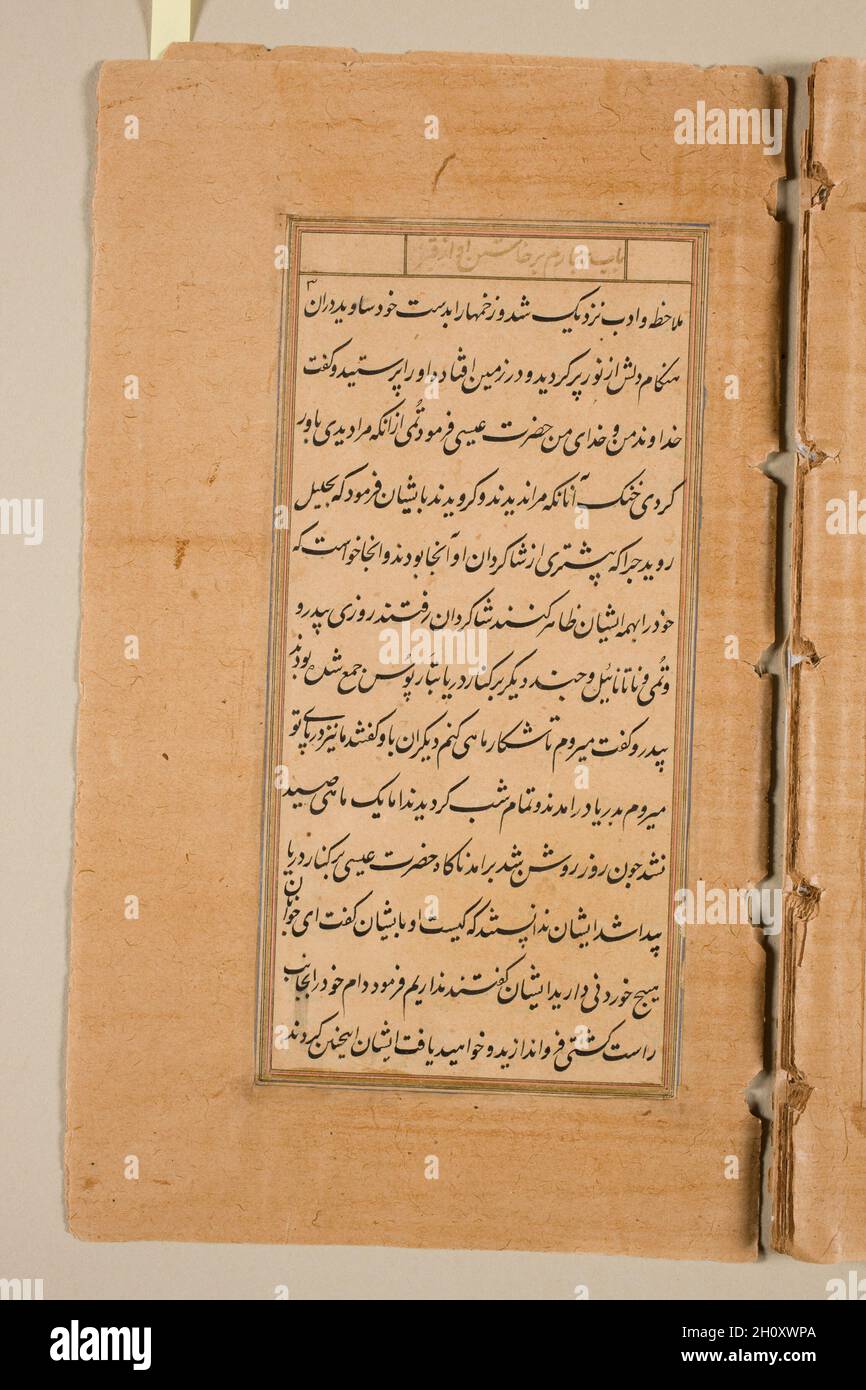 باب چهارم برخاستن او از قبر
ملاحظه و ادب نزدیک شد و زخمها را بدست خود ساوید دران
هنکام دلش از نور پر کردید و در زمین افتاده او را پرستید و کفت
خداوند من و خدای من حضرت عیسی فرمود تُمی ازانکه مرا دیدی باور
کردی خنک آنانکه مرا ندیدند و کرویدند بایشان فرمود که بجلیل
روید چرا که پیشتری از شاکردان او آنجا بودند و انجا خواست که
خود را بهمه ایشان ظاهر کنند شاکردان رفتند روزی پیدرو
و تُمی و ناتانئیل و چند دیکر بر کنار دریا جمع شده بودند
پیدرو کفت میروم تا شکار ماهی کنم دیکران باو کفتند ما نیز در پای تو
میروم بدریا درامدند و تمام شب کردیدند اما یک ماهی صید
نشد چون روز روشن شد برامد ناکاه حضرت عیسی بر کنار دریا
پیدا شد ایشان ندانستند که کیست او بایشان کفت ای جوانان
هیچ خوردنی دارید ایشان کفتند نداریم فرمود دام خود را بجانب
راست کشتی فرو اندازید و خواهید یافت ایشان اینچنین کردند
alamy
Image ID: 2H0XWPA
www.alamy.com